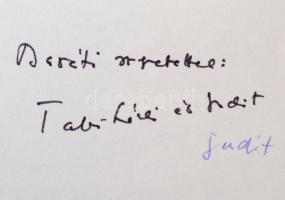 Baráti szeretettel:
Tabi László és Judit
Judit